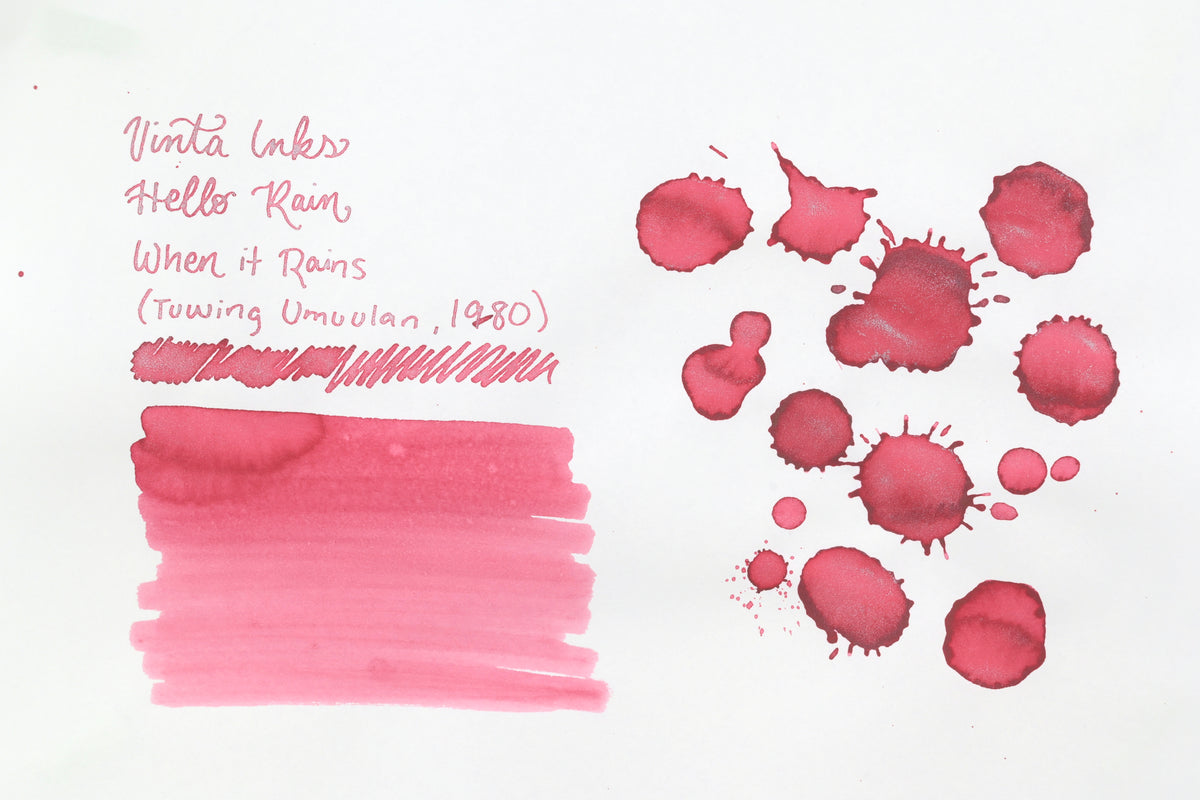 Vinta Inks
Hello Rain
When it Rains
(Tuwing Umuulan, 1980)